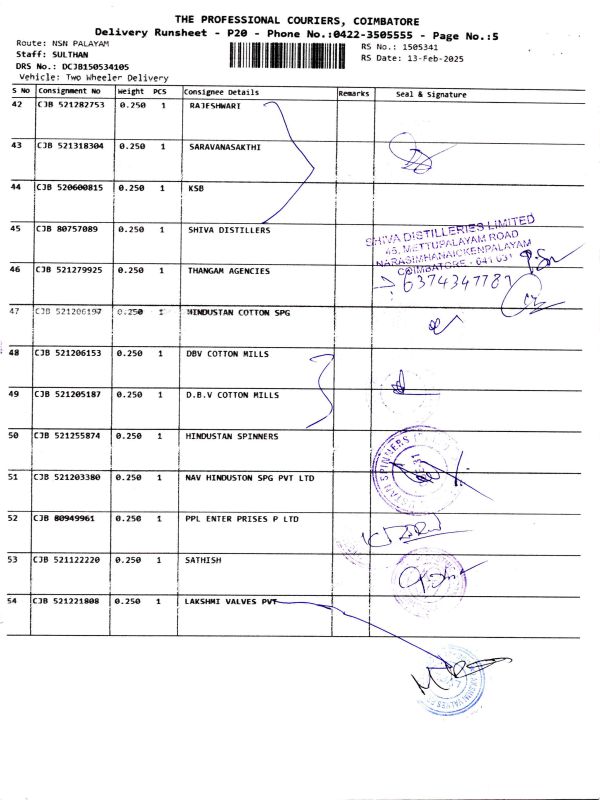 THE PROFESSIONAL COURIERS, COIMBATORE
Delivery Runsheet - P20 - Phone No.:0422-3505555 - Page No.:5
Route: NSN PALAYAM
RS No.: 1505341
Staff: SULTHAN
RS Date: 13-Feb-2025
DRS No.: DCJB150534105
Vehicle: Two Wheeler Delivery
S No Consignment No Weight PCS Consignee Details Remarks Seal & Signature
42 CJB 521282753 0.250 1 RAJESHWARI
43 CJB 521318304 0.250 1 SARAVANASAKTHI
44 CJB 520600815 0.250 1 KSB
45 CJB 80757089 0.250 1 SHIVA DISTILLERS
SHIVA DISTILLERIES LIMITED
METTUPALAYAM ROAD
NARASIMHANAICKENPALAYAM
COIMBATORE - 641 031
46 CJB 521279925 0.250 1 THANGAM AGENCIES
47 CJB 521206197 0.250 1 HINDUSTAN COTTON SPG
48 CJB 521206153 0.250 1 DBV COTTON MILLS
49 CJB 521205187 0.250 1 D.B.V COTTON MILLS
50 CJB 521255874 0.250 1 HINDUSTAN SPINNERS
51 CJB 521203380 0.250 1 NAV HINDUSTON SPG PVT LTD
52 CJB 80949961 0.250 1 PPL ENTER PRISES P LTD
53 CJB 521122220 0.250 1 SATHISH
54 CJB 521221808 0.250 1 LAKSHMI VALVES PVT